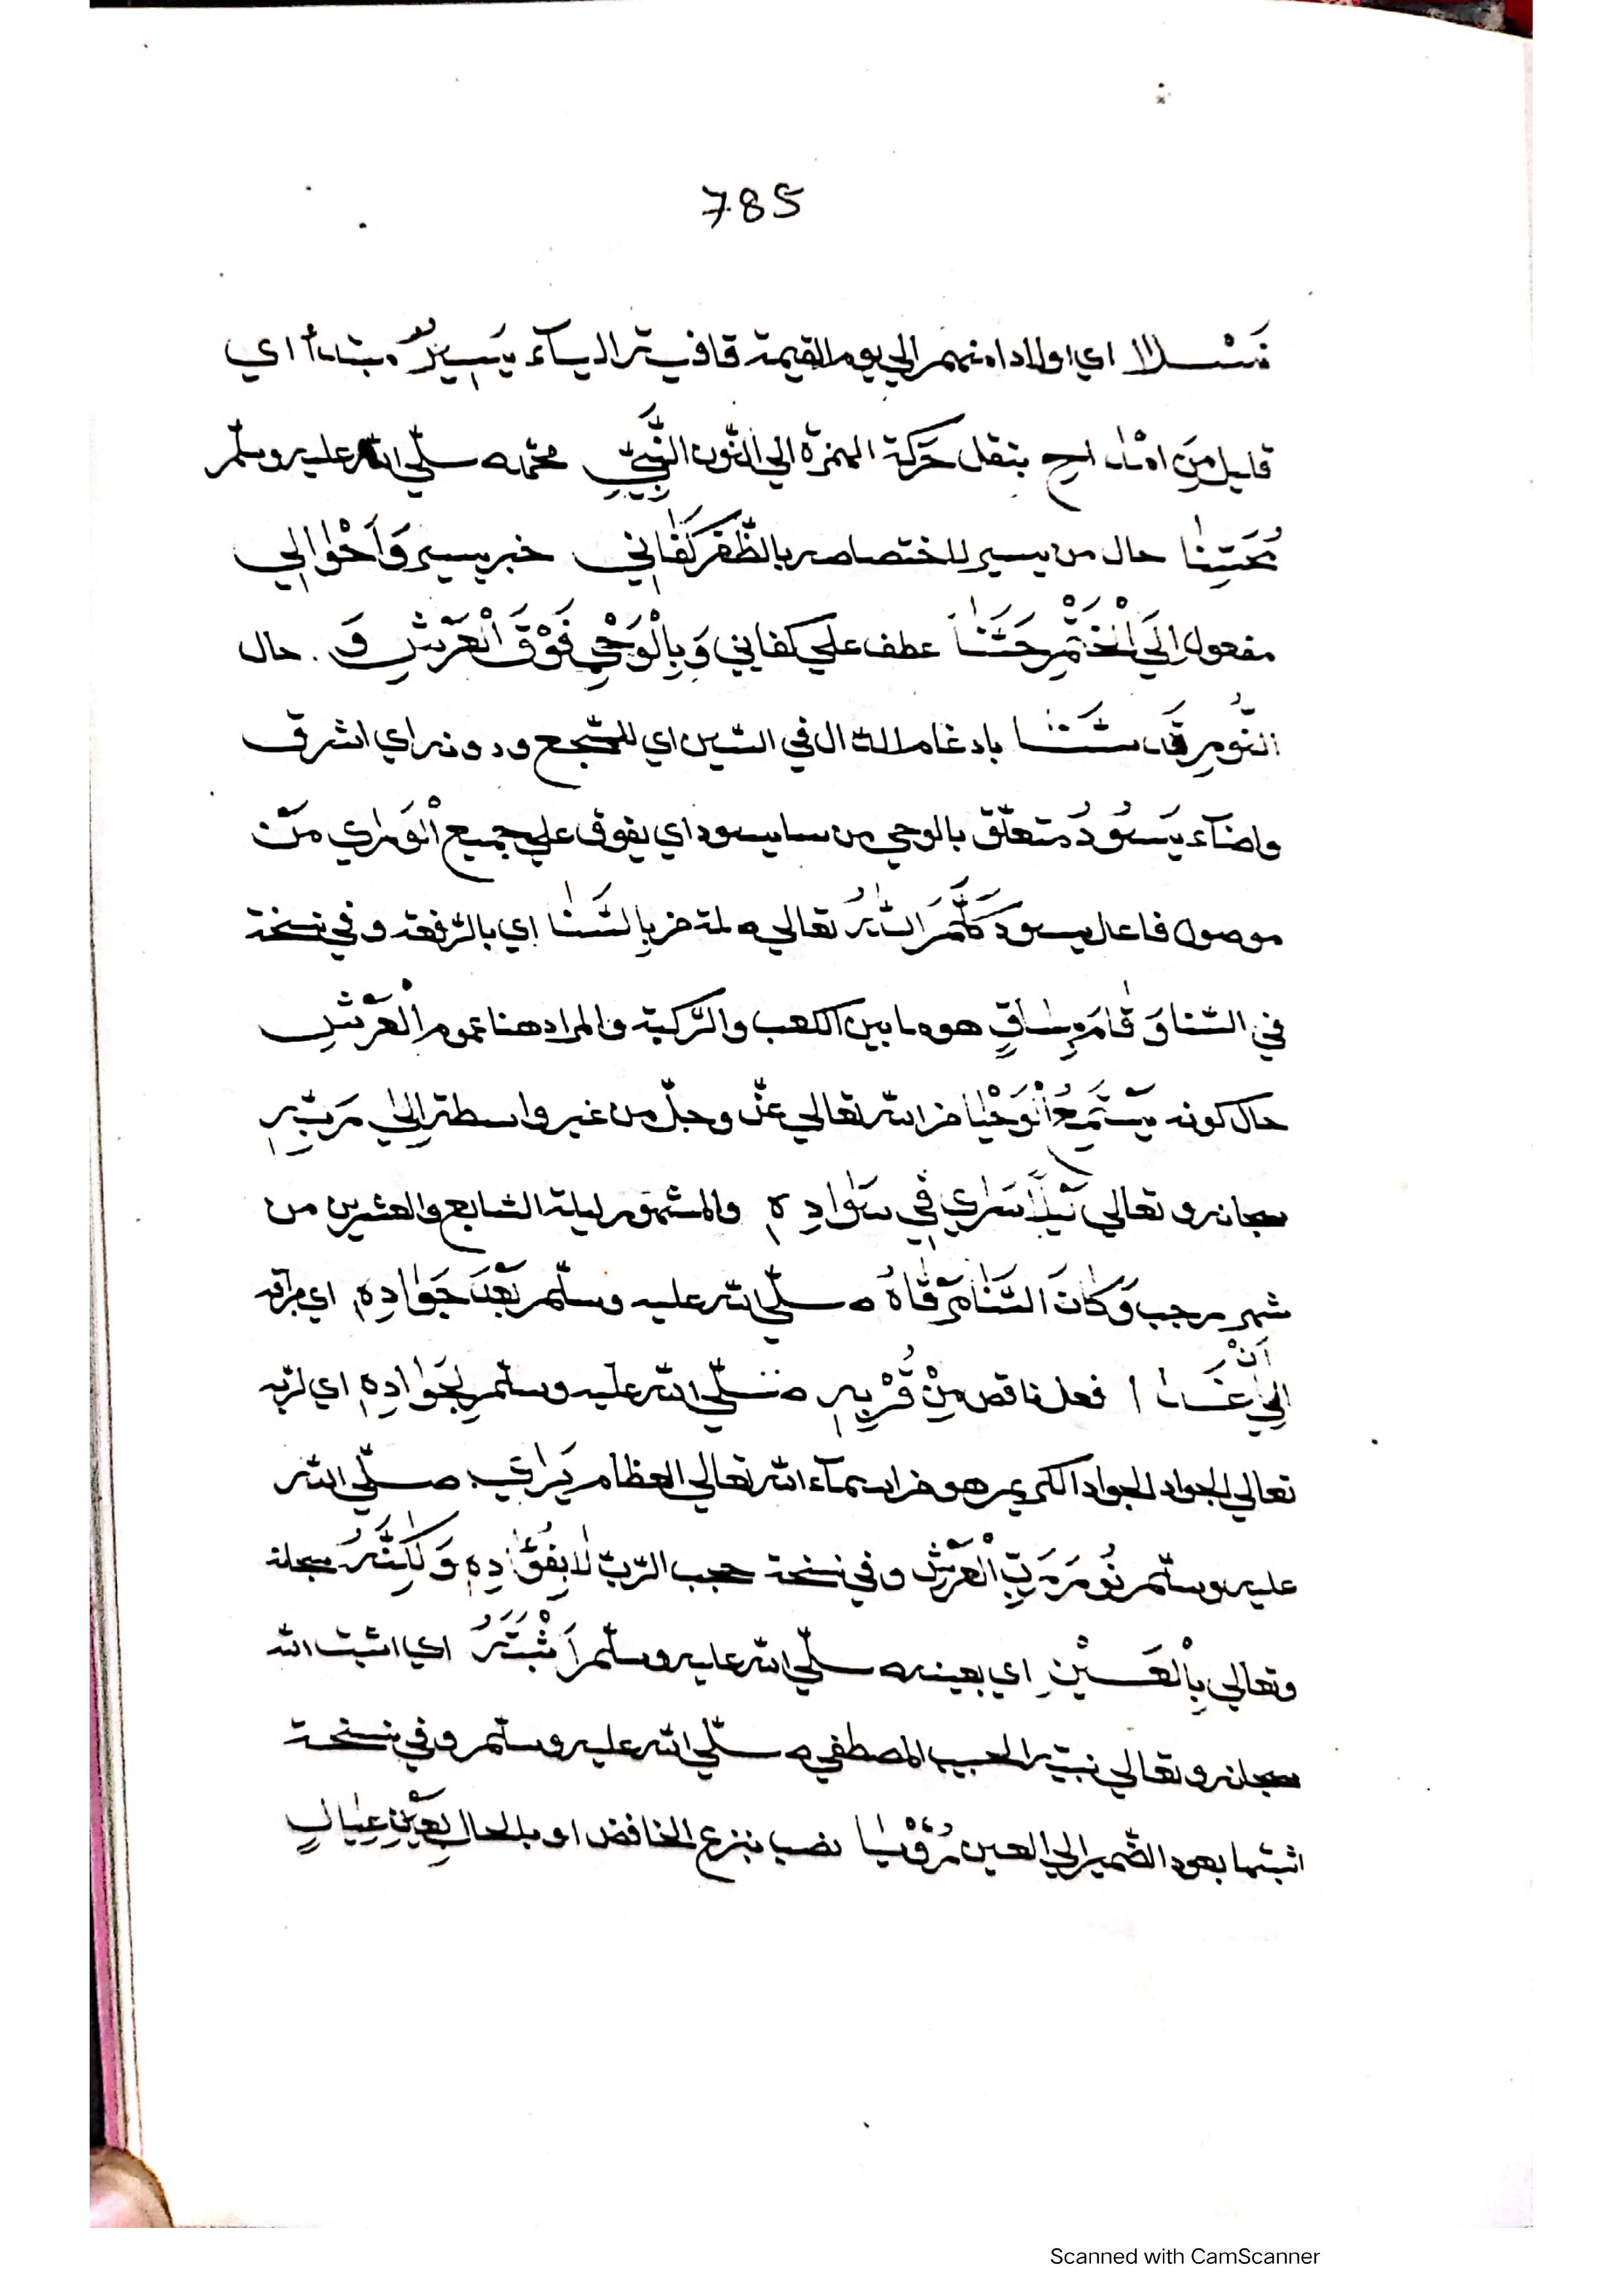 785
نَسْلًا اي اولادا منهم الي يوم القيمة قافيته الياء يَسِيرٌ مبتدأ اي
قليل مِنَ امْدَاحِ بنقل حَرَكة الهمزة الي النّون النَّبِيِّ محمّد صلّي الله عليه وسلّم
حال من يسير للاختصاصه بالظّفر كَفَانِي خبر يسير وَاَحْوَالِي
مفعول اِلَي الْخَتْمِ حَسَّنَا عطف علي كفاني وَبِالْوَحْيِ فَوْقَ الْعَرْشِ وَ حال
النُّورِ قَد سَّنَا بادغام الدّال في السّين اي للسّجع ودونه اي اشرق
واضآء يَسُودُ متعلّق بالوحي من ساد يسود اي يفوق علي جميع الْوَرَاي مَنْ
موصول فاعل يسود كَلَّمَ اللّٰهُ تعالي صلته بِالسَّنَا اي بالرّفعة وفي نسخة
في السّنا وَقَامَ بِسَاقٍ هو ما بين الكعب والرّكبة والمراد هنا عموم الْعَرْشِ
حال كونه يَسْتَمِعُ الْوَحْيَا من الله تعالي عزّ وجلّ من غير واسطة اِلَي رَبِّهِ
سبحانه وتعالي لَيْلًا سَرَاي فِي سَوَادِهِ والمشهور ليلة السّابع والعشرين من
شهر رجب وَكَانَ السَّنَا مَرْقَاهُ صلّي الله عليه وسلّم بَعْدَ جَوَادِهِ اي براقه
اِلَي اَنْ غَدَا فعل ناقص مِنْ قُرْبِهِ صلّي الله عليه وسلّم لِجَوَادِهِ اي لربّه
تعالي الجواد الجواد الكريم هو من اسمآء الله تعالي العظام يَرَاي صلّي الله
عليه وسلّم نُورَ رَبِّ الْعَرْشِ وفي نسخة حجب الرّبّ لَا بِفُؤَادِهِ وَلَكِنَّهُ سبحانه
وتعالي بِالْعَيْنِ اي بعينه صلّي الله عليه وسلّم اَثْبَتَهُ اي اثبت الله
سبحانه وتعالي نبيّه الحبيب المصطفي صلّي الله عليه وسلّم وفي نسخة
اثبتها بعود الضّمير الي العين رُؤْيَا نصب بنزع الخافض او بالحال بِعَيْنِ عِيَانٍ
Scanned with CamScanner